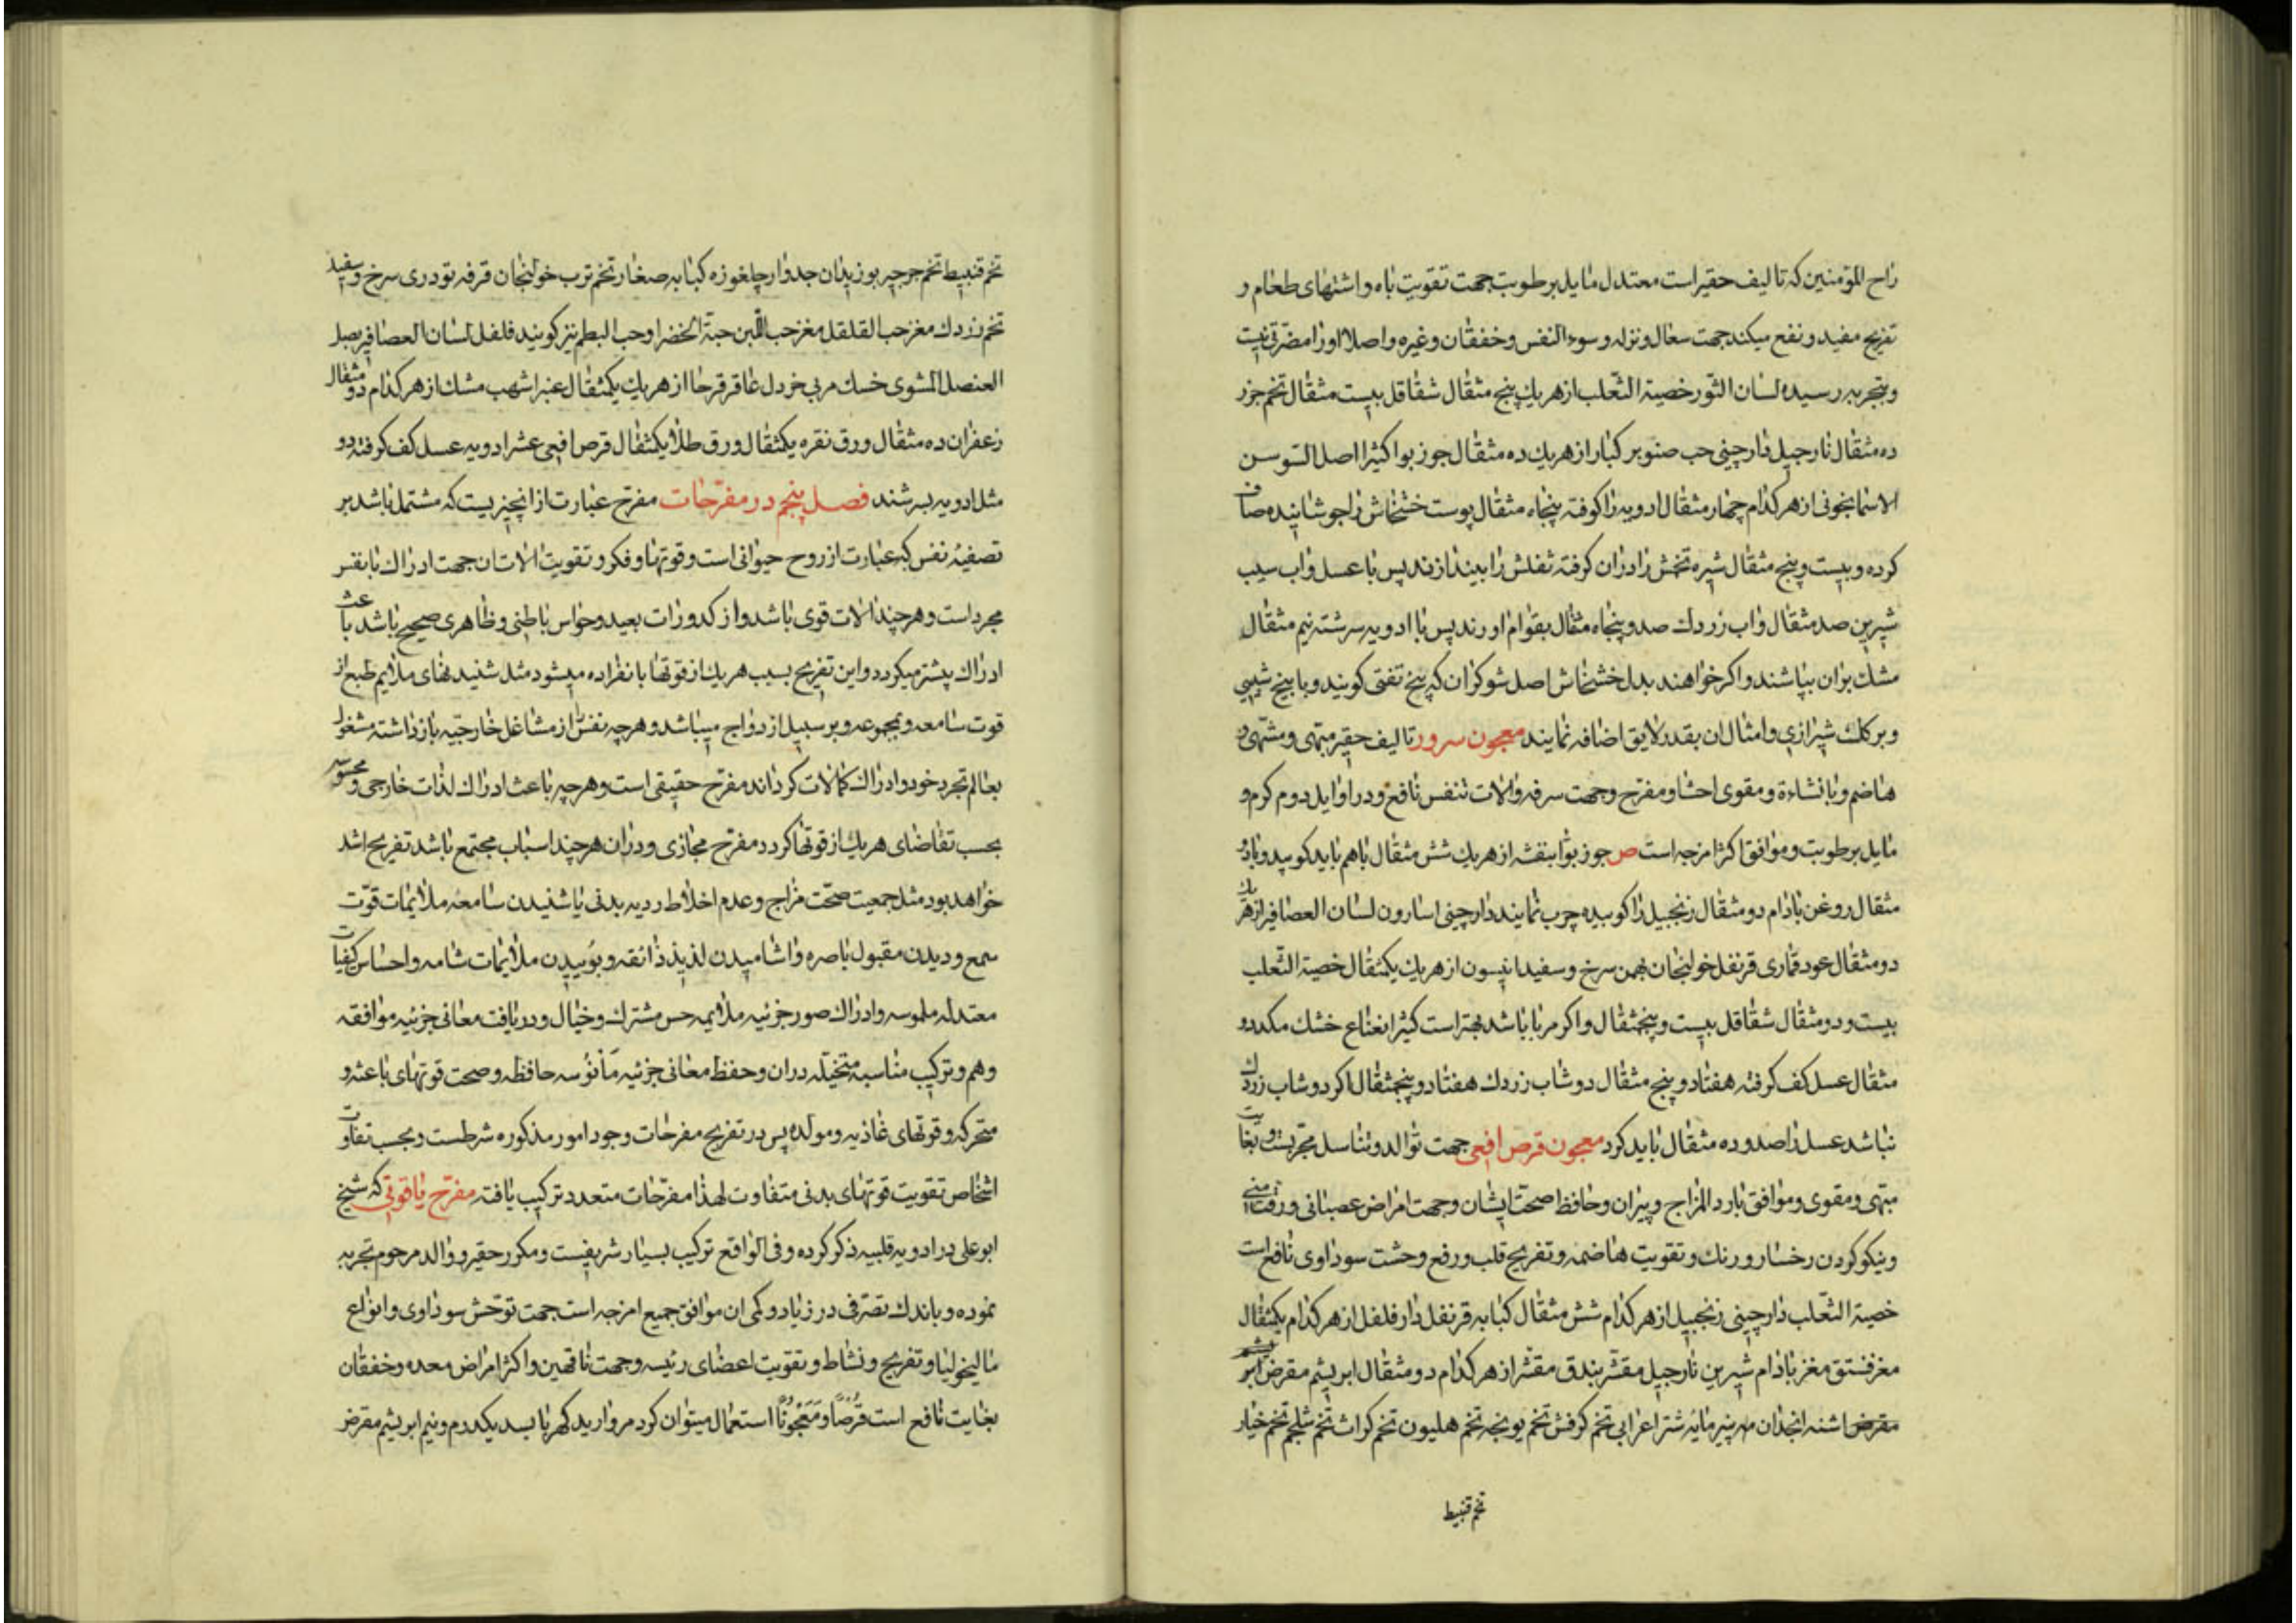 راح المؤمنین که تالیف حقیر است معتدل مایل برطوبت جهت تقویت باه و اشتهای طعام و
تفریح مفید و نفع میکند جهت سعال و نزله و سوء النفس و خفقان و غیره و اصلا او را مضرتی نیست
و بتجربه رسیده لسان الثور خصیة الثعلب از هر یک پنج مثقال شقاقل بیست مثقال تخم جزر
ده مثقال نارجیل دارچینی حب صنوبر کبار از هر یک ده مثقال جوز بوا کثیرا اصل السوسن
الاسمانجونی از هر کدام چهار مثقال ادویه را کوفته پنجاه مثقال پوست خشخاش را جوشانیده صاف
کرده و بیست و پنج مثقال شیره تخمش را در ان کرفته ثفلش را بیندازند پس با عسل و اب سیب
شیرین صد مثقال و اب زردك صد و پنجاه مثقال بقوام اورند پس با ادویه سرشته نیم مثقال
مشك بران بپاشند و اکر خواهند بدل خشخاش اصل شوکران که بیخ تفتی کویند و با بیخ شیبی
و برکك شیرازی و امثال ان بقدر لایق اضافه نمایند معجون سرور تالیف حقیر مبهی و مشهی و
هاضم و با نشاءة و مقوی احشا و مفرح و جهت سرفه و الات تنفس نافع و در اوایل دوم کرم و
مایل برطوبت و موافق اکثر امزجه است ص جوز بوا بنفشه از هر یك شش مثقال باهم باید کوبید و با دو
مثقال روغن بادام دو مثقال زنجبیل را کوبیده چرب نمایند دارچینی اسارون لسان العصافیر از هر یك
دو مثقال عود قماری قرنفل خولنجان بهمن سرخ و سفید انیسون از هر یك یکمثقال خصیة الثعلب
بیست و دو مثقال شقاقل بیست و پنجمثقال و اکر مربا باشد بهتر است کثیرا نعناع خشك مکد دو
مثقال عسل کف کرفته هفتاد و پنج مثقال دوشاب زردك هفتاد و پنجمثقال اکر دوشاب زردك
نباشد عسل را صد و ده مثقال باید کرد معجون قرص افعی جهت توالد و تناسل مجربست و بغایت
مبهی و مقوی و موافق بارد المزاج و پیران و حافظ صحت ایشان و جهت امراض عصبانی و رقت منی
و نیکو کردن رخسار و رنك و تقویت هاضمه و تفریح قلب و رفع وحشت سوداوی نافع است
خصیة الثعلب دارچینی زنجبیل از هر کدام شش مثقال کبابه قرنفل دارفلفل از هر کدام یکمثقال
مغز فستق مغز بادام شیرین نارجیل مقشر بندق مقشر از هر کدام دو مثقال ابریشم مقرض
مقرض اشنه انجدان پنیر مایه شتر اعرابی تخم کرفش تخم یونجه تخم هلیون تخم کراث تخم شلجم تخم خیار
تخم قنبیط
تخم قنبیط تخم جرجیر بوزیدان جدوار چلغوزه کبابه صغار تخم ترب خولنجان قرفه تودری سرخ و سفید
تخم زردك مغز حب القلقل مغز حب اللبن حبة الخضرا و حب البطم نیز کویند فلفل لسان العصافیر بصل
العنصل المشوی خسك مربی خردل عاقرقرحا از هر یك یکمثقال عنبر اشهب مشك از هر کدام دو مثقال
زعفران ده مثقال ورق نقره یکمثقال ورق طلا یکمثقال قرص افعی عشر ادویه عسل کف کرفته دو
مثل ادویه بسرشند فصل پنجم در مفرحات مفرح عبارت از انچیزیست که مشتمل باشد بر
تصفیه نفس که عبارت از روح حیوانی است و قوتها و فکر و تقویت الات ان جهت ادراك با نفس
مجرد است و هر چند الات قوی باشد و از کدورات بعید و حواس باطنی و ظاهری صحیح باشد باعث
ادراك بیشتر میکردد و این تفریح بسبب هر یك از قوتها بانفراده میشود مثل شنید نهای ملایم طبع از
قوت سامعه و بمجموعه و بر سبیل ازدواج میباشد و هر چه نفس را از مشاغل خارجیه بازداشته مشغول
بعالم تجرد خود و ادراك کمالات کرداند مفرح حقیقی است و هر چه باعث ادراك لذات خارجی و محسوسه
بحسب تقاضای هر یك از قوتها کردد مفرح مجازی و در ان هر چند اسباب مجتمع باشد تفریح اشد
خواهد بود مثل جمعیت صحت مزاج و عدم اخلاط ردیه بدنی با شنیدن سامعه ملایمات قوت
سمع و دیدن مقبول باصره و اشامیدن لذیذ ذائقه و بوئیدن ملایمات شامه و احساس کیفیات
معتدله ملموسه و ادراك صور جزئیه ملایمه حس مشترك و خیال و دریافت معانی جزئیه موافقه
وهم و ترکیب مناسبه متخیله در ان و حفظ معانی جزئیه مأنوسه حافظه و صحت قوتهای باعثه و
متحرکه و قوتهای غاذیه و مولده پس در تفریح مفرحات وجود امور مذکوره شرطست و بحسب تفاوت
اشخاص تقویت قوتهای بدنی متفاوت لهذا مفرحات متعدد ترکیب یافته مفرح یاقوتی که شیخ
ابو علی در ادویه قلبیه ذکر کرده و فی الواقع ترکیب بسیار شریفیست و مکرر حقیر و والد مرحوم تجربه
نموده و باندك تصرفی در زیاد و کمی ان موافق جمیع امزجه است جهت توحش سوداوی و انواع
مالیخولیا و تفریح و نشاط و تقویت اعضای رئیسه و جهت ناقهین و اکثر امراض معده و خفقان
بغایت نافع است قرصًا و معجونًا استعمال میتوان کرد مروارید کهربا بسد یکدرم و نیم ابریشم مقرض